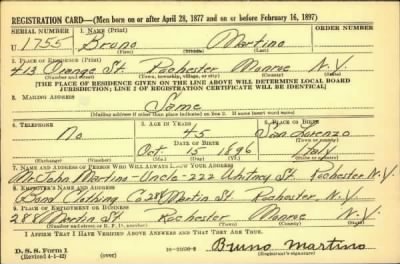 REGISTRATION CARD—(Men born on or after April 28, 1877 and on or before February 16, 1897)
SERIAL NUMBER 1. NAME (Print) ORDER NUMBER
U 1755 Bruno Martino
(First) (Middle) (Last)
2. PLACE OF RESIDENCE (Print)
413 Orange St. Rochester Monroe N.Y.
(Number and street) (Town, township, village, or city) (County) (State)
[THE PLACE OF RESIDENCE GIVEN ON THE LINE ABOVE WILL DETERMINE LOCAL BOARD
JURISDICTION; LINE 2 OF REGISTRATION CERTIFICATE WILL BE IDENTICAL]
3. MAILING ADDRESS
Same
[Mailing address if other than place indicated on line 2. If same insert word same]
4. TELEPHONE 5. AGE IN YEARS 6. PLACE OF BIRTH
No 45 San Lorenzo
DATE OF BIRTH (Town or county)
Oct. 15 1896 Italy
(Exchange) (Number) (Mo.) (Day) (Yr.) (State or country)
7. NAME AND ADDRESS OF PERSON WHO WILL ALWAYS KNOW YOUR ADDRESS
Mr. John Martino-Uncle-222 Whitney St. Rochester N.Y.
8. EMPLOYER'S NAME AND ADDRESS
Bond Clothing Co 288 Martin St. Rochester, N.Y.
9. PLACE OF EMPLOYMENT OR BUSINESS
288 Martin St. Rochester Monroe N.Y.
(Number and street or R. F. D. number) (Town) (County) (State)
I AFFIRM THAT I HAVE VERIFIED ABOVE ANSWERS AND THAT THEY ARE TRUE.
D. S. S. Form 1
(Revised 4-1-42) (over) Bruno Martino
(Registrant's signature)